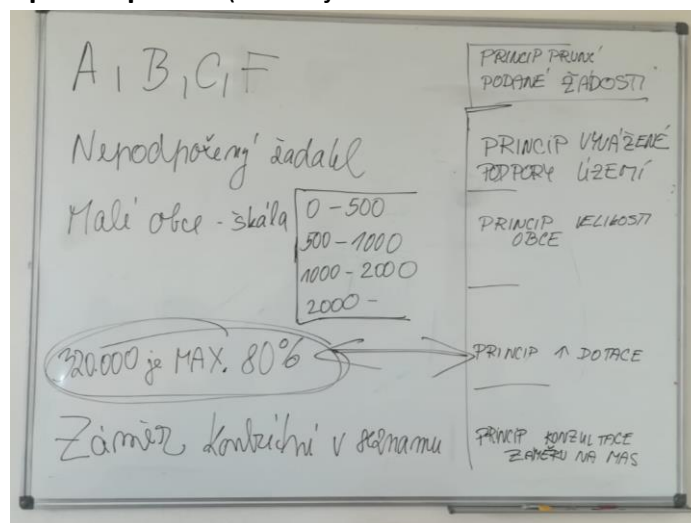 A, B, C, F
Nepodpořený žadatel
Malé obce - škála
0 - 500
500 - 1000
1000 - 2000
2000 -
320.000 je MAX. 80%
Záměr konkrétní v seznamu
PRINCIP PRVNÍ
PODANÉ ŽÁDOSTI
PRINCIP VYVÁŽENÉ
PODPORY ÚZEMÍ
PRINCIP VELIKOSTI
OBCE
PRINCIP ↑ DOTACE
PRINCIP KONZULTACE
ZÁMĚRU NA MAS